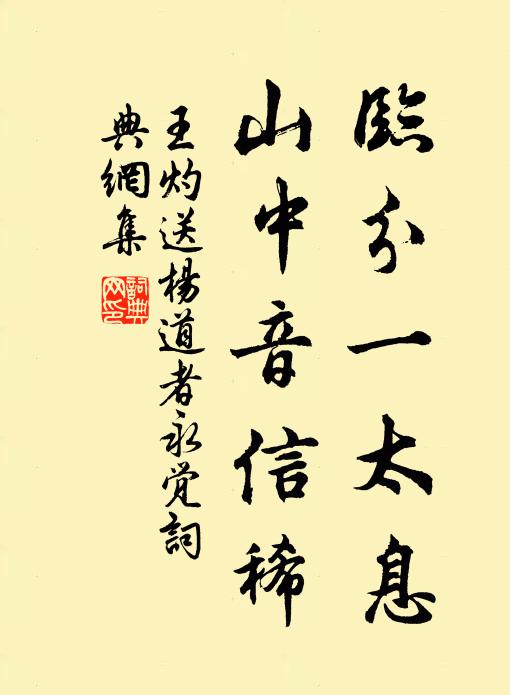 臨分一太息
山中音信稀
王灼送楊道者永觉詞
典網集
詞典网印